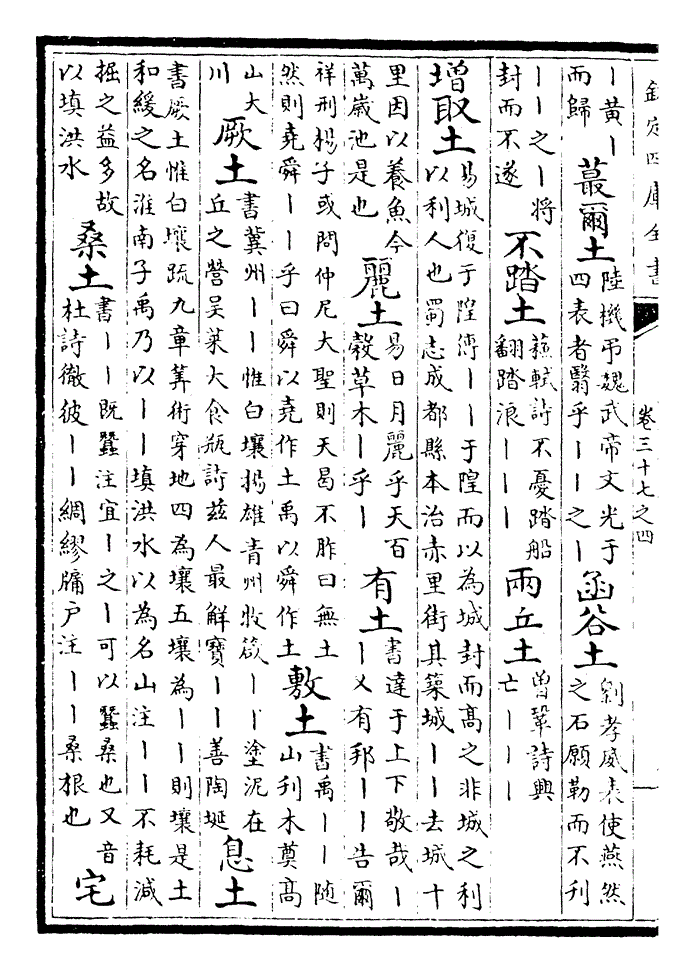 欽定四庫全書 卷三十七之四
丨黄丨而歸 蕞爾土 陸機弔魏武帝文光于四表者翳乎丨丨之丨 函谷土 劉孝威表使燕然之石願勒而不刋
丨丨之丨將封而不遂 不踏土 蘇軾詩不憂踏船翻踏浪丨丨丨 兩丘土 曾鞏詩興亡丨丨丨
增取土 易城復于隍傳丨丨于隍而以為城封而髙之非城之利以利人也蜀志成都縣本治赤里街其築城丨丨去城十
里因以養魚今萬歲池是也 麗土 易日月麗乎天百榖草木丨乎丨 有土 書達于上下敬哉丨丨乂有邦丨丨告爾
祥刑揚子或問仲尼大聖則天曷不胙曰無土然則堯舜丨丨乎曰舜以堯作土禹以舜作土 敷土 書禹丨丨随山刋木奠髙
山大川 厥土 書冀州丨丨惟白壤揚雄青州牧箴丨丨塗泥在丘之營吴萊大食瓶詩兹人最解寳丨丨善陶埏 息土
書厥土惟白壤疏九章筭術穿地四為壤五壤為丨丨則壤是土和緩之名淮南子禹乃以丨丨填洪水以為名山注丨丨不耗減
掘之益多故以填洪水 桑土 書丨丨既蠶注宜丨之丨可以蠶桑也又音杜詩徹彼丨丨綢繆牖户注丨丨桑根也 宅